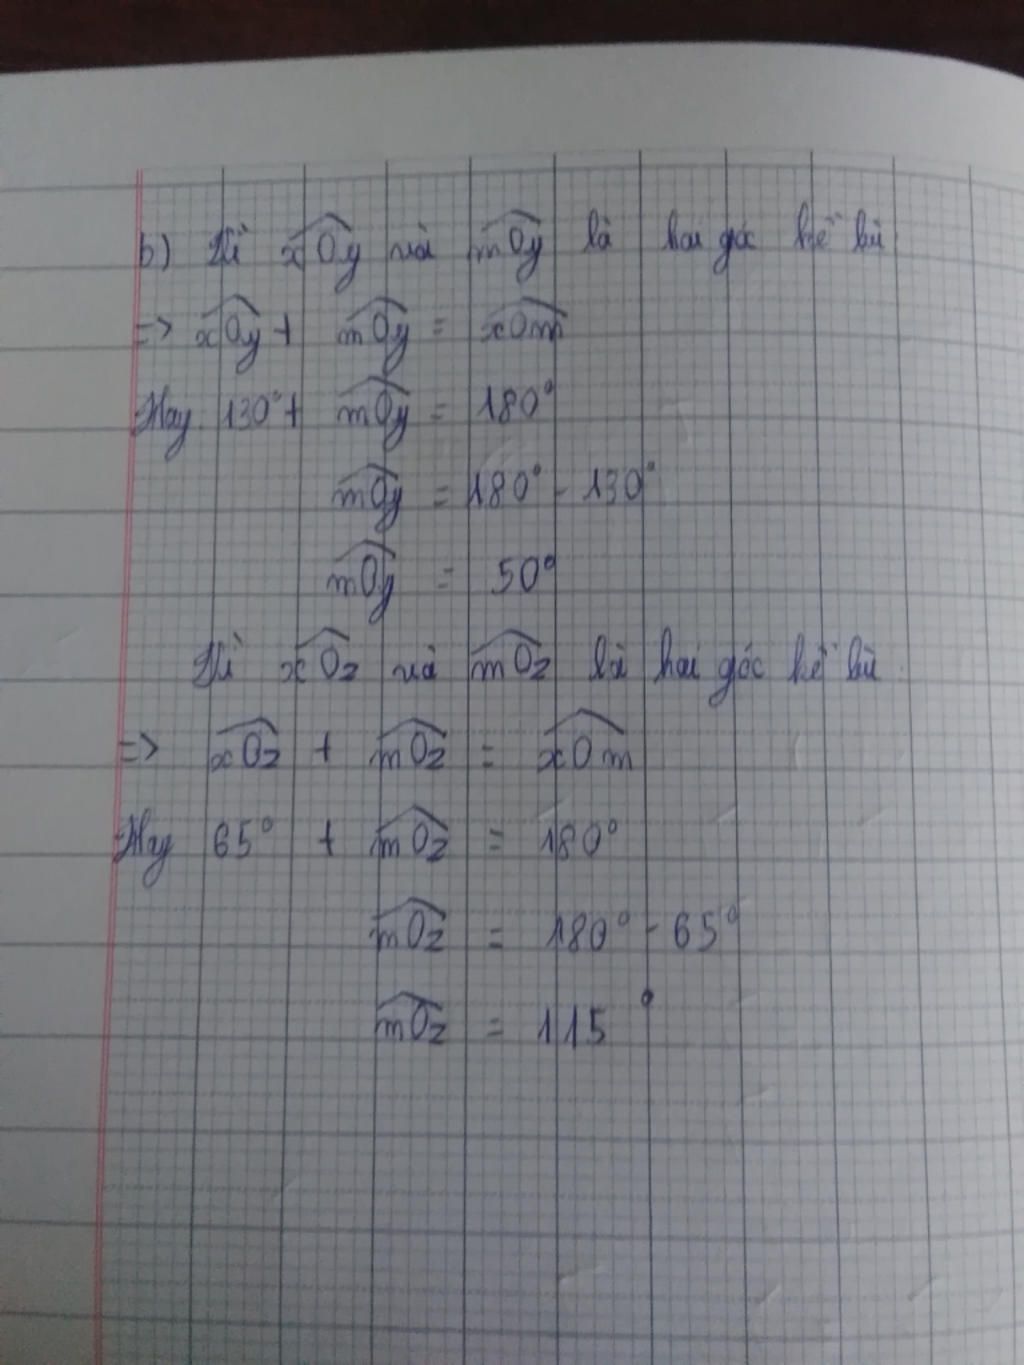 b) Vì xOy và mOy là hai góc kề bù
=> xOy + mOy = xOm
Hay 130° + mOy = 180°
mOy = 180° - 130°
mOy = 50°
Vì xOz và mOz là hai góc kề bù.
=> xOz + mOz = xOm
Hay 65° + mOz = 180°
mOz = 180° - 65°
mOz = 115°